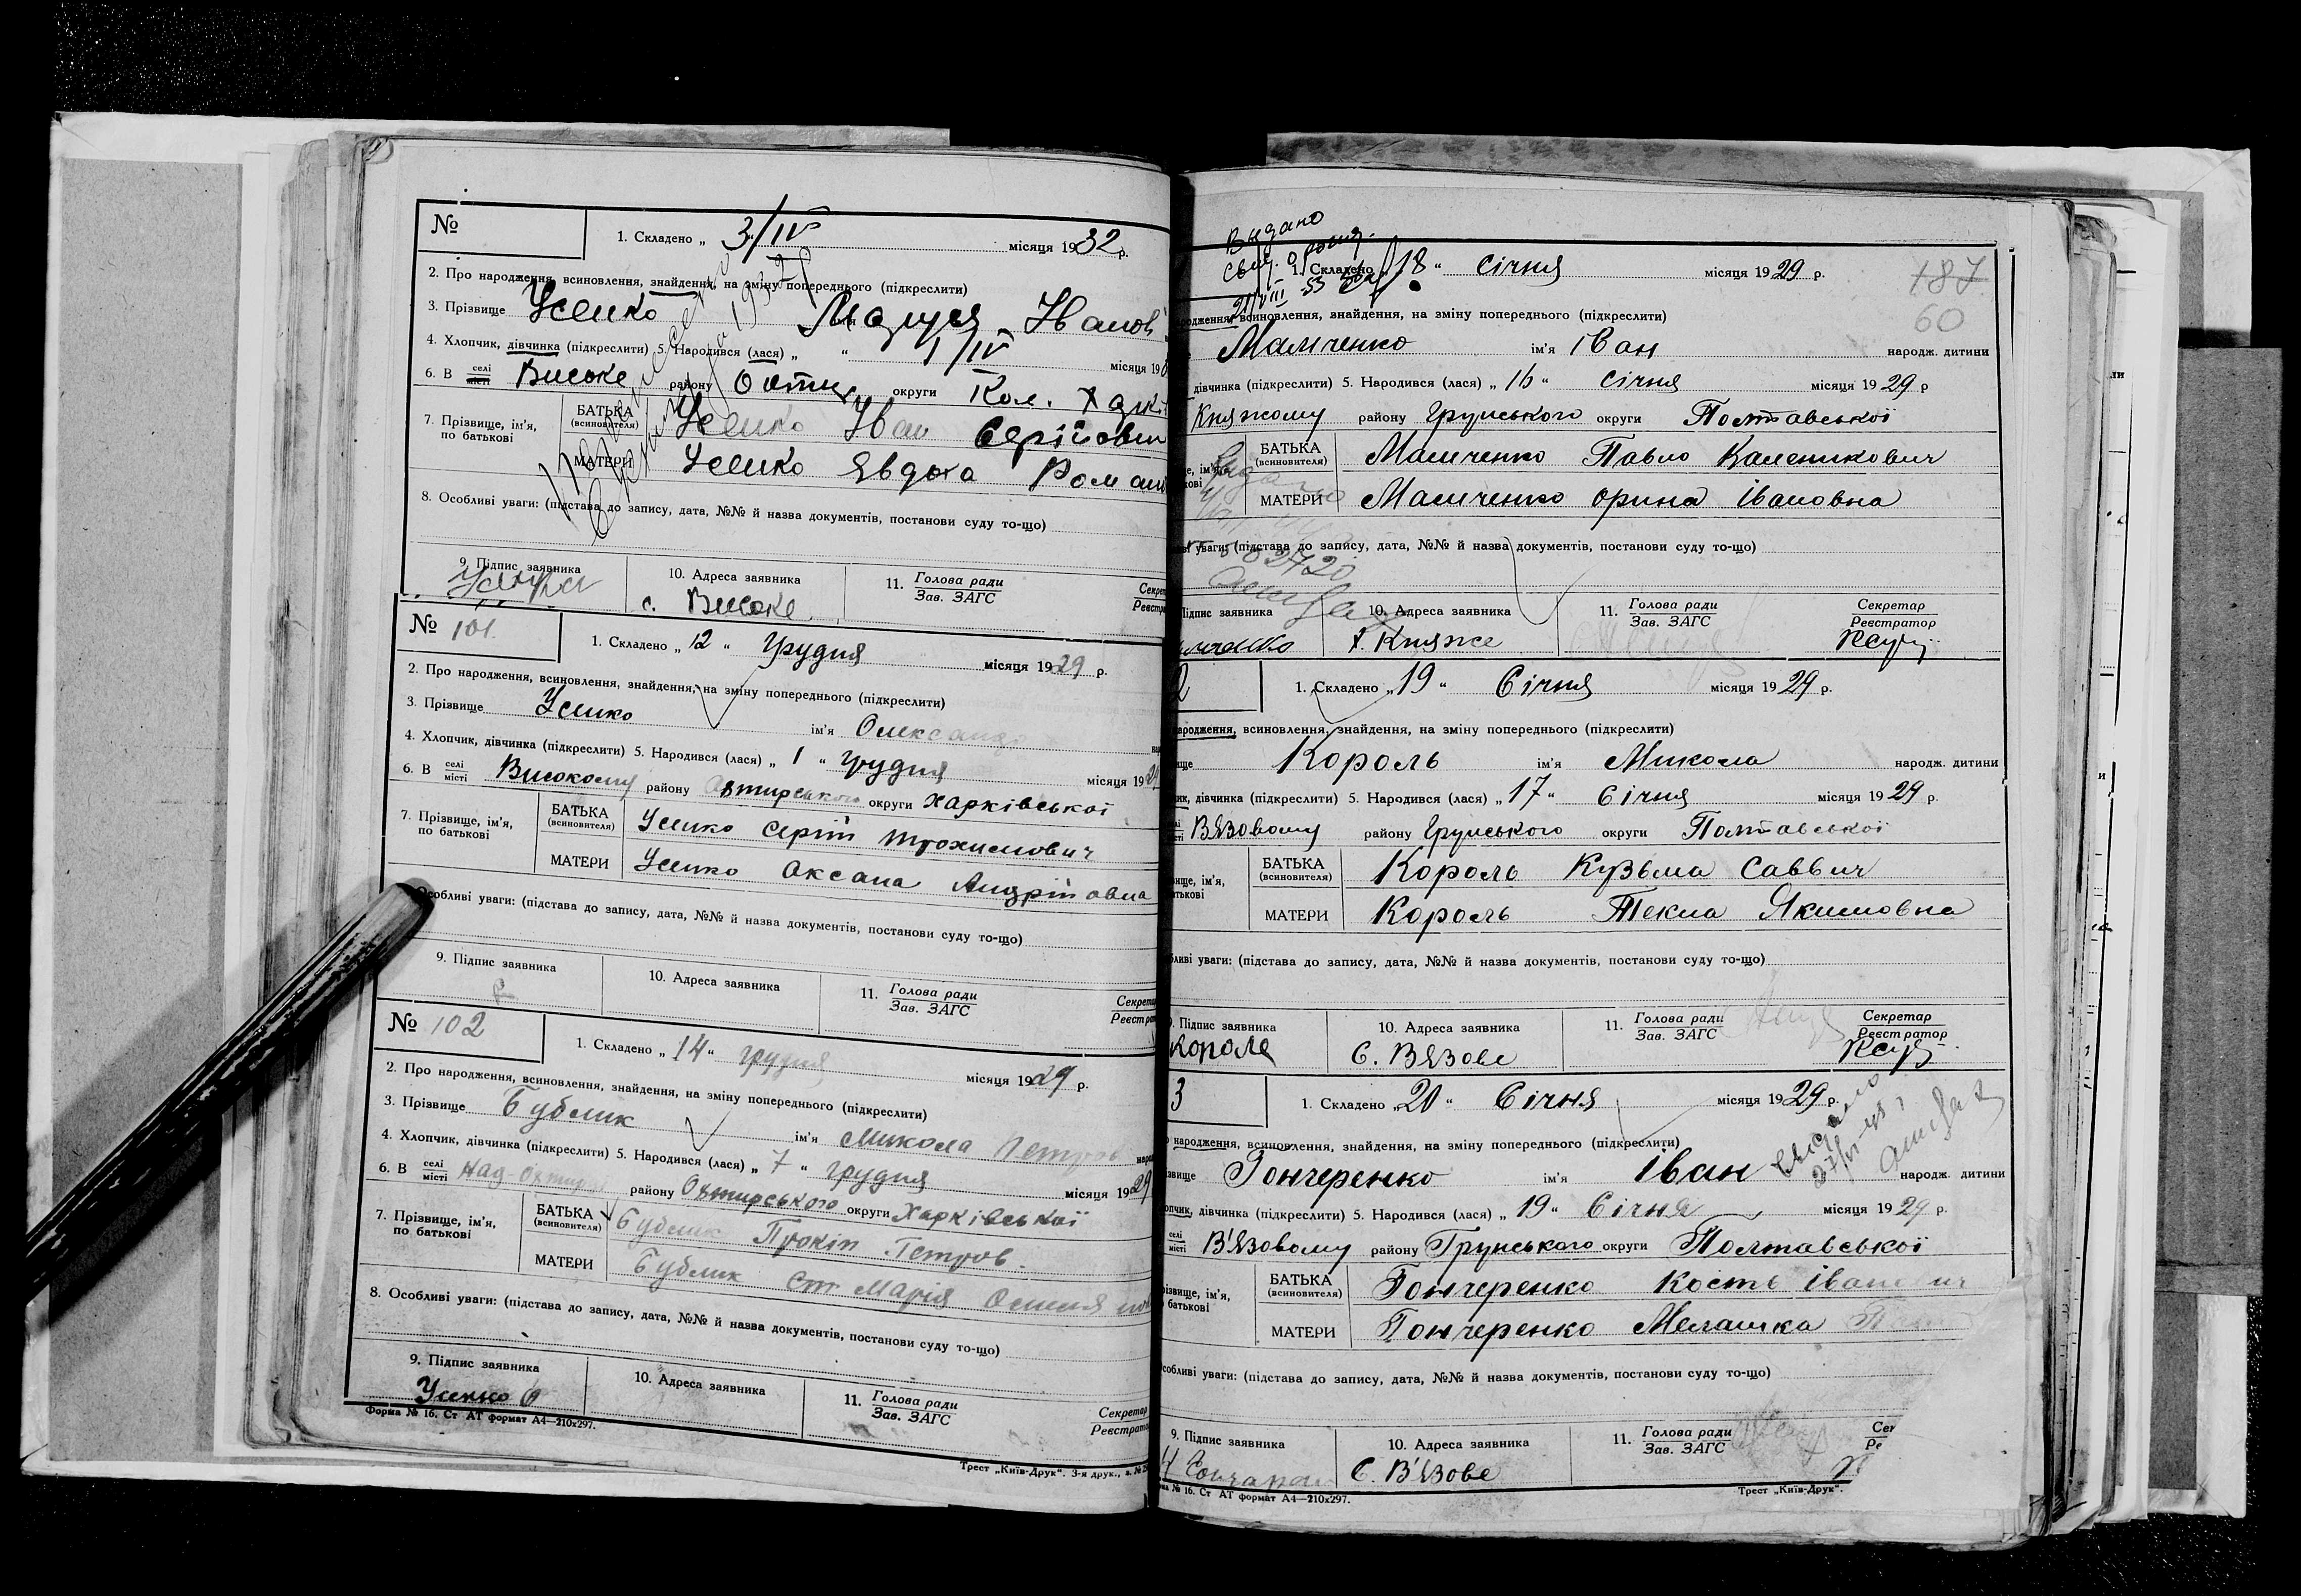 №
1. Складено „ 3/IV місяця 1932 р.
2. Про народження, всиновлення, знайдення, на зміну попереднього (підкреслити)
3. Прізвище Усенко Маруся Іванов
4. Хлопчик, дівчинка (підкреслити) 5. Народився (лася) „ “ 1/IV місяця 19
6. В селі місті Високе району округи Харк
7. Прізвище, ім'я, по батькові
БАТЬКА (всиновителя) Усенко Іван Сергійович
МАТЕРИ Усенко Явдоха Роман
8. Особливі уваги: (підстава до запису, дата, №№ й назва документів, постанови суду то-що)
9. Підпис заявника 10. Адреса заявника 11. Голова ради Зав. ЗАГС
с. Високе
№ 101
1. Складено „ 12 “ Грудня місяця 1929 р.
2. Про народження, всиновлення, знайдення, на зміну попереднього (підкреслити)
3. Прізвище Усенко ім'я Олександ
4. Хлопчик, дівчинка (підкреслити) 5. Народився (лася) „ 1 “ грудня місяця 1929
6. В селі місті Високому району Охтирського округи Харківської
7. Прізвище, ім'я, по батькові
БАТЬКА (всиновителя) Усенко Сергій Трохимович
МАТЕРИ Усенко Оксана Андріївна
Особливі уваги: (підстава до запису, дата, №№ й назва документів, постанови суду то-що)
9. Підпис заявника 10. Адреса заявника 11. Голова ради Зав. ЗАГС
№ 102
1. Складено „ 14 “ грудня місяця 1929 р.
2. Про народження, всиновлення, знайдення, на зміну попереднього (підкреслити)
3. Прізвище Бублик ім'я Микола Петров
4. Хлопчик, дівчинка (підкреслити) 5. Народився (лася) „ 7 “ грудня місяця 1929
6. В селі місті району Охтирського округи Харківської
7. Прізвище, ім'я, по батькові
БАТЬКА (всиновителя) Бублик Прокіп Петров.
МАТЕРИ Бублик Марія
8. Особливі уваги: (підстава до запису, дата, №№ й назва документів, постанови суду то-що)
9. Підпис заявника 10. Адреса заявника 11. Голова ради Зав. ЗАГС
Усенко
Форма № 16. Ст АТ формат А4—210x297.
Трест „Київ-Друк“. 3-я друк., з. №
Выдано
свид. о рожд.
1. Складено „ 18 “ січня місяця 1929 р.
187
60
народження, всиновлення, знайдення, на зміну попереднього (підкреслити)
Мамченко ім'я Іван народж. дитини
дівчинка (підкреслити) 5. Народився (лася) „ 16 “ січня місяця 1929 р
Княжому району Грунського округи Полтавської
БАТЬКА (всиновителя) Мамченко Павло Каленикович
МАТЕРИ Мамченко Орина Івановна
уваги: (підстава до запису, дата, №№ й назва документів, постанови суду то-що)
Підпис заявника 10. Адреса заявника 11. Голова ради Зав. ЗАГС Секретар Реєстратор
х. Княже
2
1. Складено „ 19 “ Січня місяця 1929 р.
народження, всиновлення, знайдення, на зміну попереднього (підкреслити)
Король ім'я Микола народж. дитини
дівчинка (підкреслити) 5. Народився (лася) „ 17 “ Січня місяця 1929 р.
Вязовому району Грунського округи Полтавської
БАТЬКА (всиновителя) Король Кузьма Саввич
МАТЕРИ Король Текла Якимовна
уваги: (підстава до запису, дата, №№ й назва документів, постанови суду то-що)
Підпис заявника 10. Адреса заявника 11. Голова ради Зав. ЗАГС Секретар Реєстратор
Король С. Вязове
3
1. Складено „ 20 “ Січня місяця 1929 р.
народження, всиновлення, знайдення, на зміну попереднього (підкреслити)
Гончеренко ім'я Іван народж. дитини
дівчинка (підкреслити) 5. Народився (лася) „ 19 “ Січня місяця 1929 р.
селі місті В'язовому району Грунського округи Полтавської
БАТЬКА (всиновителя) Гончеренко Кость Іванович
МАТЕРИ Гончеренко Мелашка
особливі уваги: (підстава до запису, дата, №№ й назва документів, постанови суду то-що)
9. Підпис заявника 10. Адреса заявника 11. Голова ради Зав. ЗАГС
С. В'язове
№ 16. Ст АТ формат А4—210x297.
Трест „Київ-Друк“.